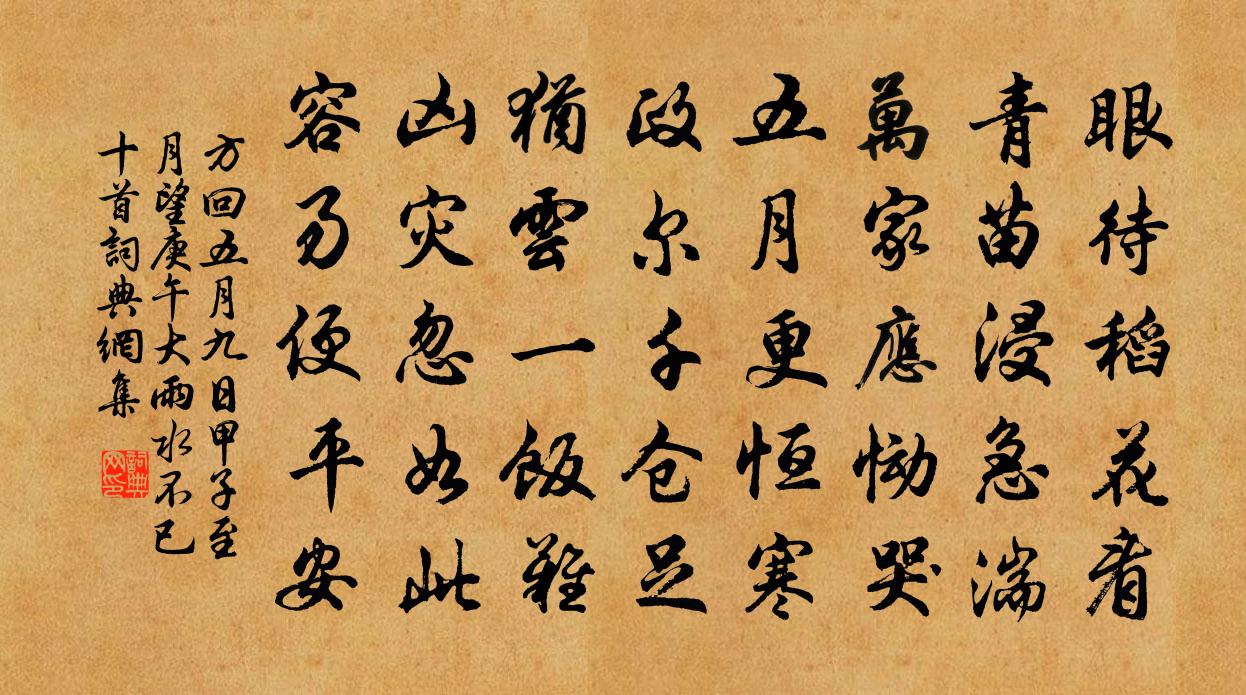 眼待稻花看
青苗浸急湍
萬家應慟哭
五月更恒寒
政尔千仓足
猶雲一飯難
凶灾忽如此
容易便平安
方回五月九日甲子至
月望庚午大雨水不已
十首詞典網集
詞典网印